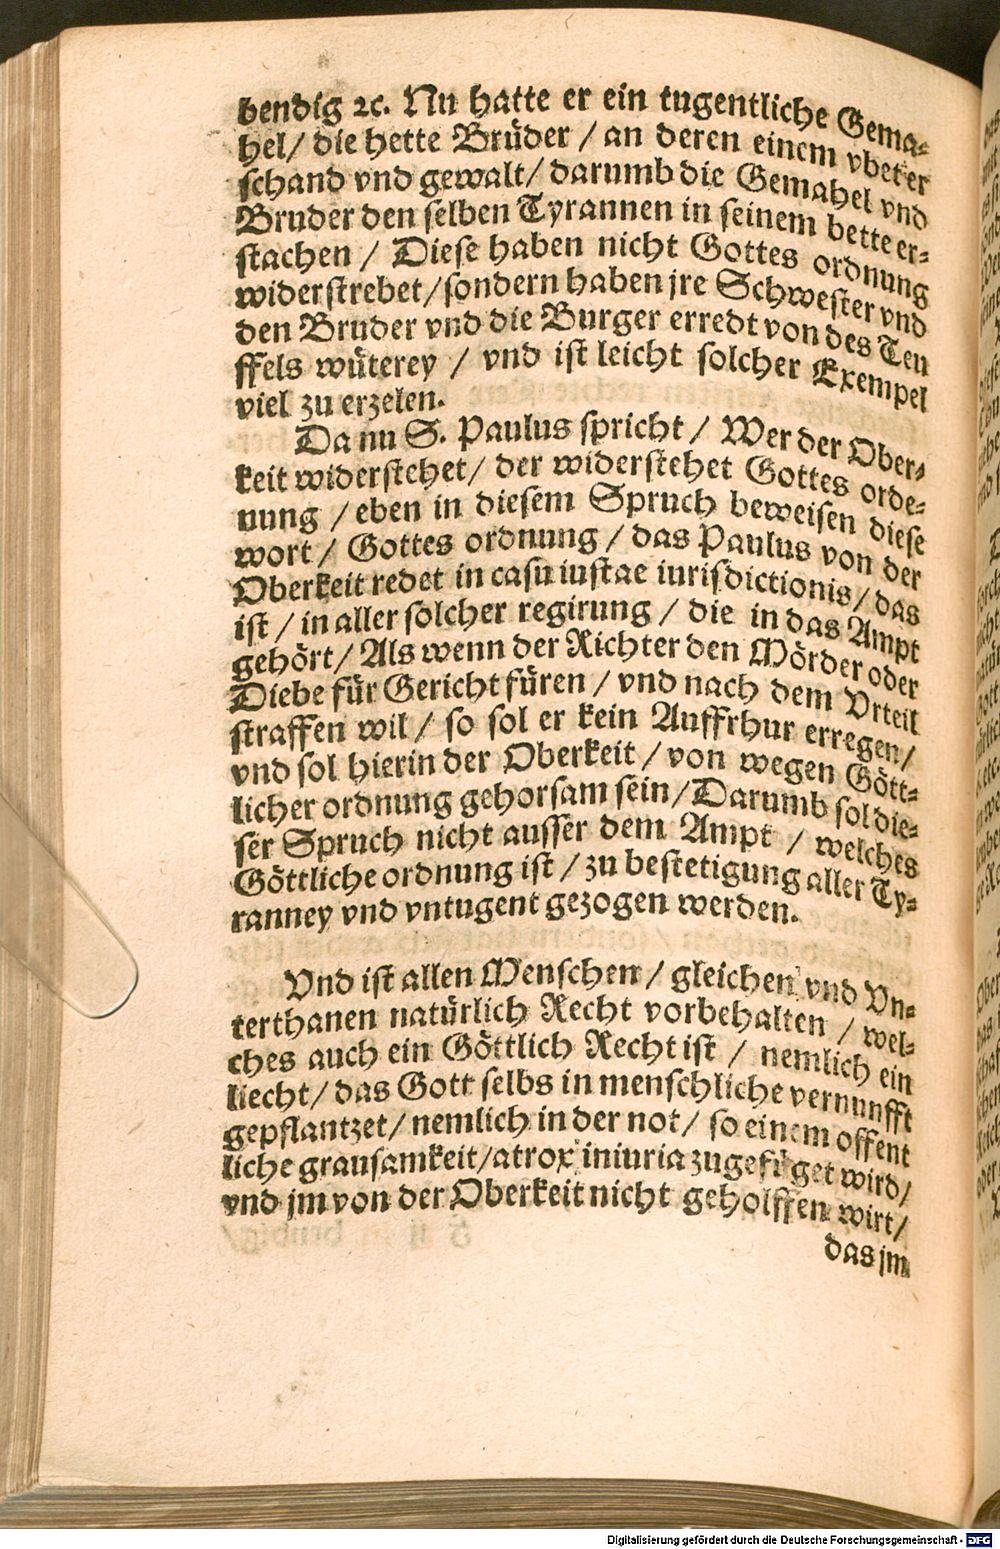 bendig ꝛc. Nu hatte er ein tugentliche Gema⸗
hel/ die hette Brüder / an deren einem vbet er
schand vnd gewalt/ darumb die Gemahel vnd
Bruder den selben Tyrannen in seinem bette er⸗
stachen / Diese haben nicht Gottes ordnung
widerstrebet/sondern haben jre Schwester vnd
den Bruder vnd die Burger erredt von des Teu
ffels wüterey / vnd ist leicht solcher Exempel
viel zu erzelen.
Da nu S. Paulus spricht / Wer der Ober⸗
keit widerstehet/ der widerstehet Gottes orde⸗
nung / eben in diesem Spruch beweisen diese
wort / Gottes ordnung / das Paulus von der
Oberkeit redet in casu iustae iurisdictionis/ das
ist / in aller solcher regirung / die in das Ampt
gehört/ Als wenn der Richter den Mörder oder
Diebe für Gericht füren / vnd nach dem Vrteil
straffen wil / so sol er kein Auffrhur erregen/
vnd sol hierin der Oberkeit / von wegen Gött⸗
licher ordnung gehorsam sein/ Darumb sol die⸗
ser Spruch nicht ausser dem Ampt / welches
Göttliche ordnung ist / zu bestetigung aller Ty⸗
ranney vnd vntugent gezogen werden.
Vnd ist allen Menschen / gleichen vnd Vn⸗
terthanen natürlich Recht vorbehalten / wel⸗
ches auch ein Göttlich Recht ist / nemlich ein
liecht/ das Gott selbs in menschliche vernunfft
gepflantzet/ nemlich in der not/ so einem offent
liche grausamkeit/atrox iniuria zugefüget wird/
vnd jm von der Oberkeit nicht geholffen wirt/
das jm
Digitalisierung gefördert durch die Deutsche Forschungsgemeinschaft - DFG